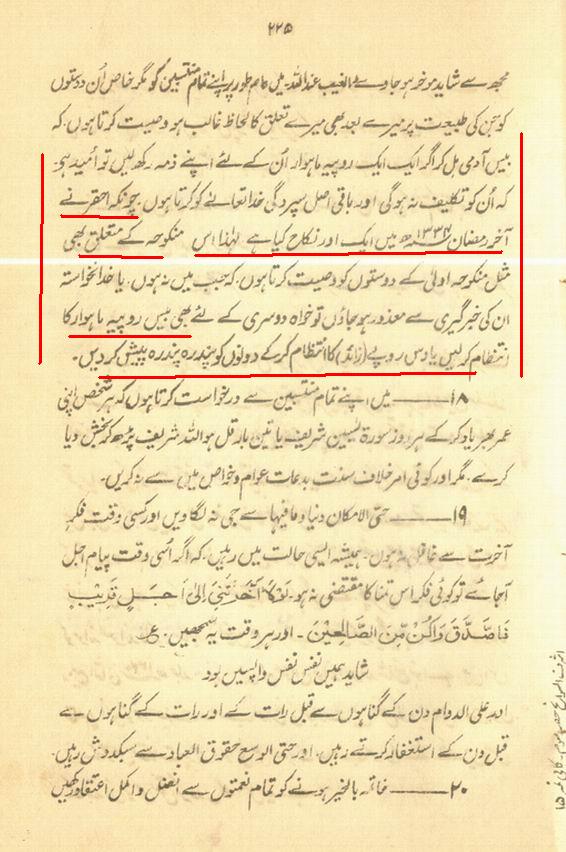 ۲۲۵
مجھ سے شاید موخر ہو جاوے والغیب عند اللہ۔ میں عام طور پر اپنے تمام منتسبین کو مگر خاص اُن دوستوں
کو جن کی طبیعت پر میرے بعد بھی میرے تعلق کا لحاظ غالب ہو وصیت کرتا ہوں۔ کہ
بیس آدمی مل کر اگر ایک ایک روپیہ ماہوار اُن کے لئے اپنے ذمہ رکھ لیں تو اُمید ہے
کہ اُن کو تکلیف نہ ہوگی اور باقی اصل سپردگی خدا تعالےٰ کو کرتا ہوں چونکہ احقر نے
آخر رمضان ۱۳۳۴ھ میں ایک اور نکاح کیا ہے لہٰذا اس منکوحہ کے متعلق بھی
مثل منکوحہ اولیٰ کے دوستوں کو وصیت کرتا ہوں، کہ جب میں نہ ہوں۔ یا خدانخواستہ
ان کی خبر گیری سے معذور ہو جاؤں تو خواہ دوسری کے لئے بھی بیس روپیہ ماہوار کا
انتظام کر لیں یا دس روپے (زائد) کا انتظام کر کے دونوں کو پندرہ پندرہ پیش کر دیں۔
۱۸ــــــ میں اپنے تمام منتسبین سے درخواست کرتا ہوں کہ ہر شخص اپنی
عمر بھر یاد کر کے ہر روز سورۃ یٰسین شریف یا تین بار قل ہو اللہ شریف پڑھ کر بخش دیا
کرے۔ مگر اور کوئی امر خلاف سنت بدعات عوام و خواص میں سے نہ کریں۔
۱۹ــــــ حتی الامکان دنیا و مافیہا سے جی نہ لگا دیں اور کسی وقت فکر
آخرت سے غافل نہ ہوں۔ ہمیشہ ایسی حالت میں رہیں، کہ اگر اُسی وقت پیام اجل
آجائے تو کوئی فکر اس تمنا کا مقتضی نہ ہو۔ لَوْلَا اَخَّرْتَنِیْ اِلیٰ اَجَلٍ قَرِیْبٍ
فَاَصَّدَّقَ وَاَکُنْ مِّنَ الصَّالِحِیْنَ۔ اور ہر وقت یہ سمجھیں۔ ع
شاید ہمیں نفس نفس واپسیں بود
اور علی الدوام دن کے گناہوں سے قبل رات کے اور رات کے گناہوں سے
قبل دن کے استغفار کرتے رہیں۔ اور حتی الوسع حقوق العباد سے سبکدوش رہیں۔
۲۰ــــــ خاتمہ بالخیر ہونے کو تمام نعمتوں سے افضل و اکمل اعتقاد رکھیں
اشرف السوانح حصہ سوم